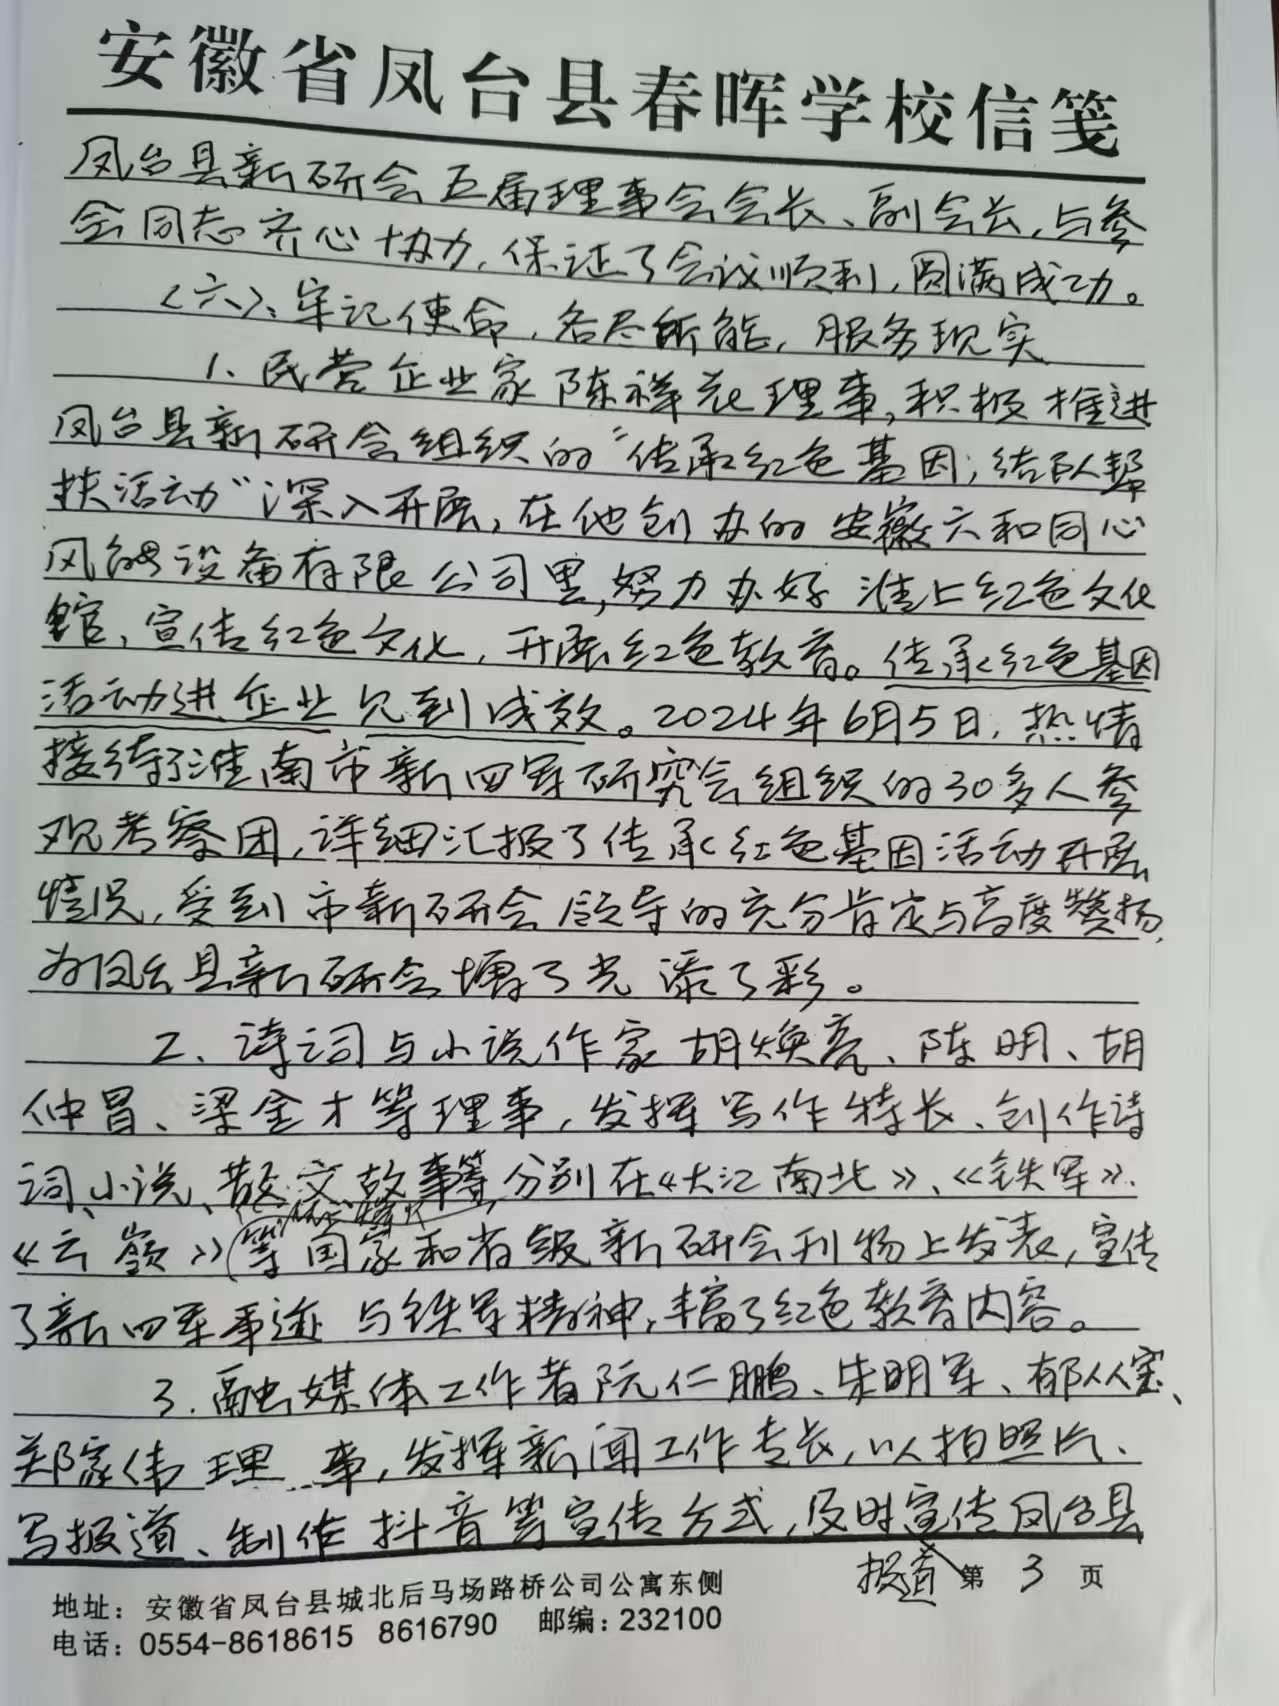 安徽省凤台县春晖学校信笺
凤台县新研会五届理事会会长、副会长,与参
会同志齐心协力,保证了会议顺利,圆满成功。
(六)、牢记使命,各尽所能,服务现实
1、民营企业家陈祥花理事,积极推进
凤台县新研会组织的“传承红色基因,结队帮
扶活动”深入开展,在他创办的安徽六和同心
风能设备有限公司里,努力办好淮上红色文化
馆,宣传红色文化,开展红色教育。传承红色基因
活动进企业见到成效。2024年6月5日,热情
接待了淮南市新四军研究会组织的30多人参
观考察团,详细汇报了传承红色基因活动开展
情况,受到市新研会领导的充分肯定与高度赞扬,
为凤台县新研会增了光添了彩。
2、诗词与小说作家胡焕亮、陈明、胡
仲昌、梁金才等理事,发挥写作特长、创作诗
词、小说、散文、故事等,分别在《大江南北》、《铁军》、
《云岭》等国家和省级新研会刊物上发表,宣传
了新四军事迹与铁军精神,丰富了红色教育内容。
3.融媒体工作者阮仁鹏、朱明军、郁从宝、
郑家伟理事,发挥新闻工作专长,以拍照片、
写报道、制作抖音等宣传方式,及时宣传凤台县
报道
第 3 页
地址:安徽省凤台县城北后马场路桥公司公寓东侧
电话:0554-8618615 8616790 邮编:232100